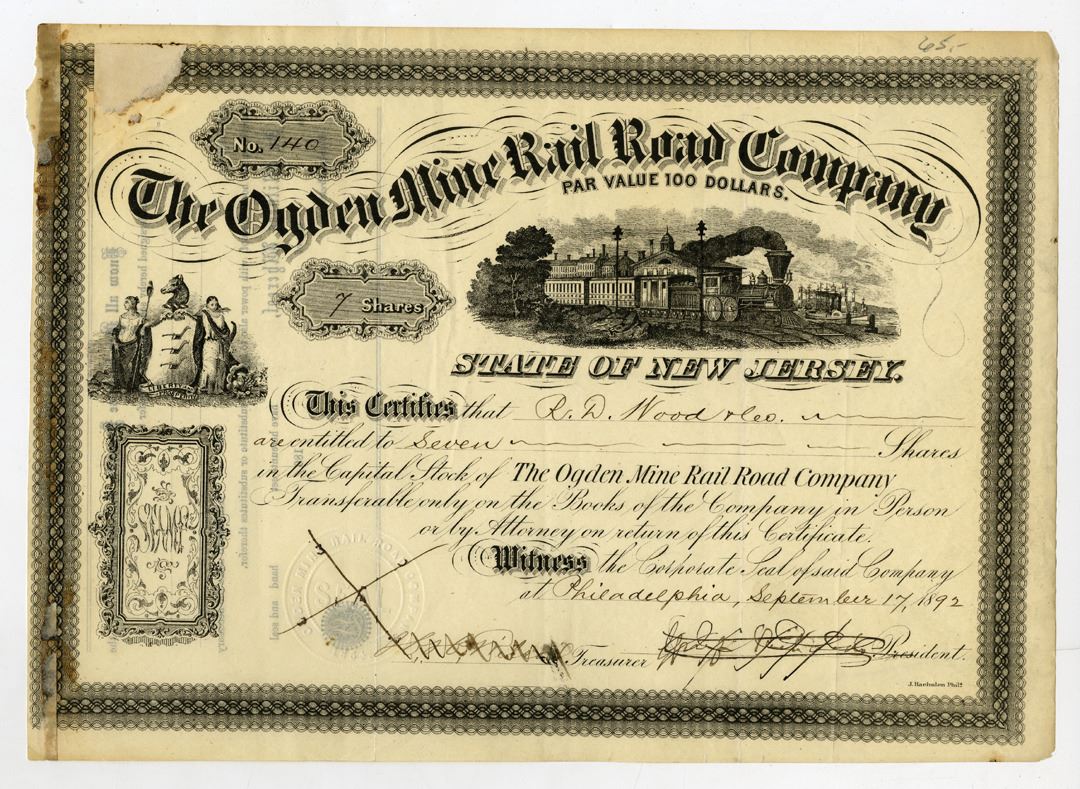 65.-
No. 140
The Ogden Mine Rail Road Company
PAR VALUE 100 DOLLARS.
7 Shares
STATE OF NEW JERSEY.
This Certifies that R. D. Wood & Co.
are entitled to Seven Shares
in the Capital Stock of The Ogden Mine Rail Road Company
Transferable only on the Books of the Company in Person
or by Attorney on return of this Certificate.
Witness the Corporate Seal of said Company
at Philadelphia, September 17, 1892
Treasurer President.
J. Haehnlen Phila